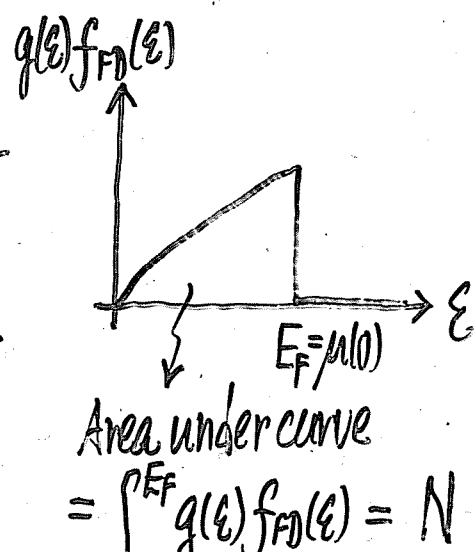 g(ε) f_FD(ε)
ε
E_F = μ(0)
Area under curve
= ∫^{E_F} g(ε) f_FD(ε) = N